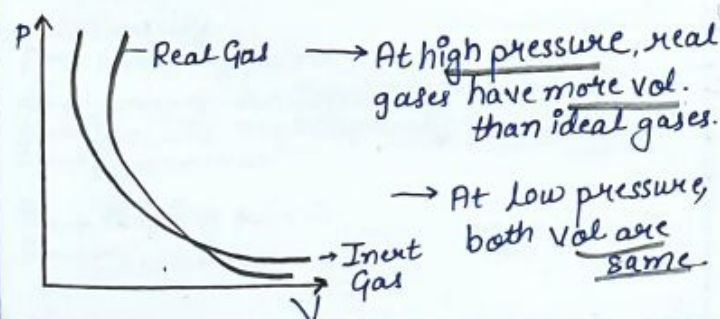 P
Real Gas → At high pressure, real
gases have more vol.
than ideal gases.
→ At low pressure,
both vol are
same
→ Inert
Gas
V